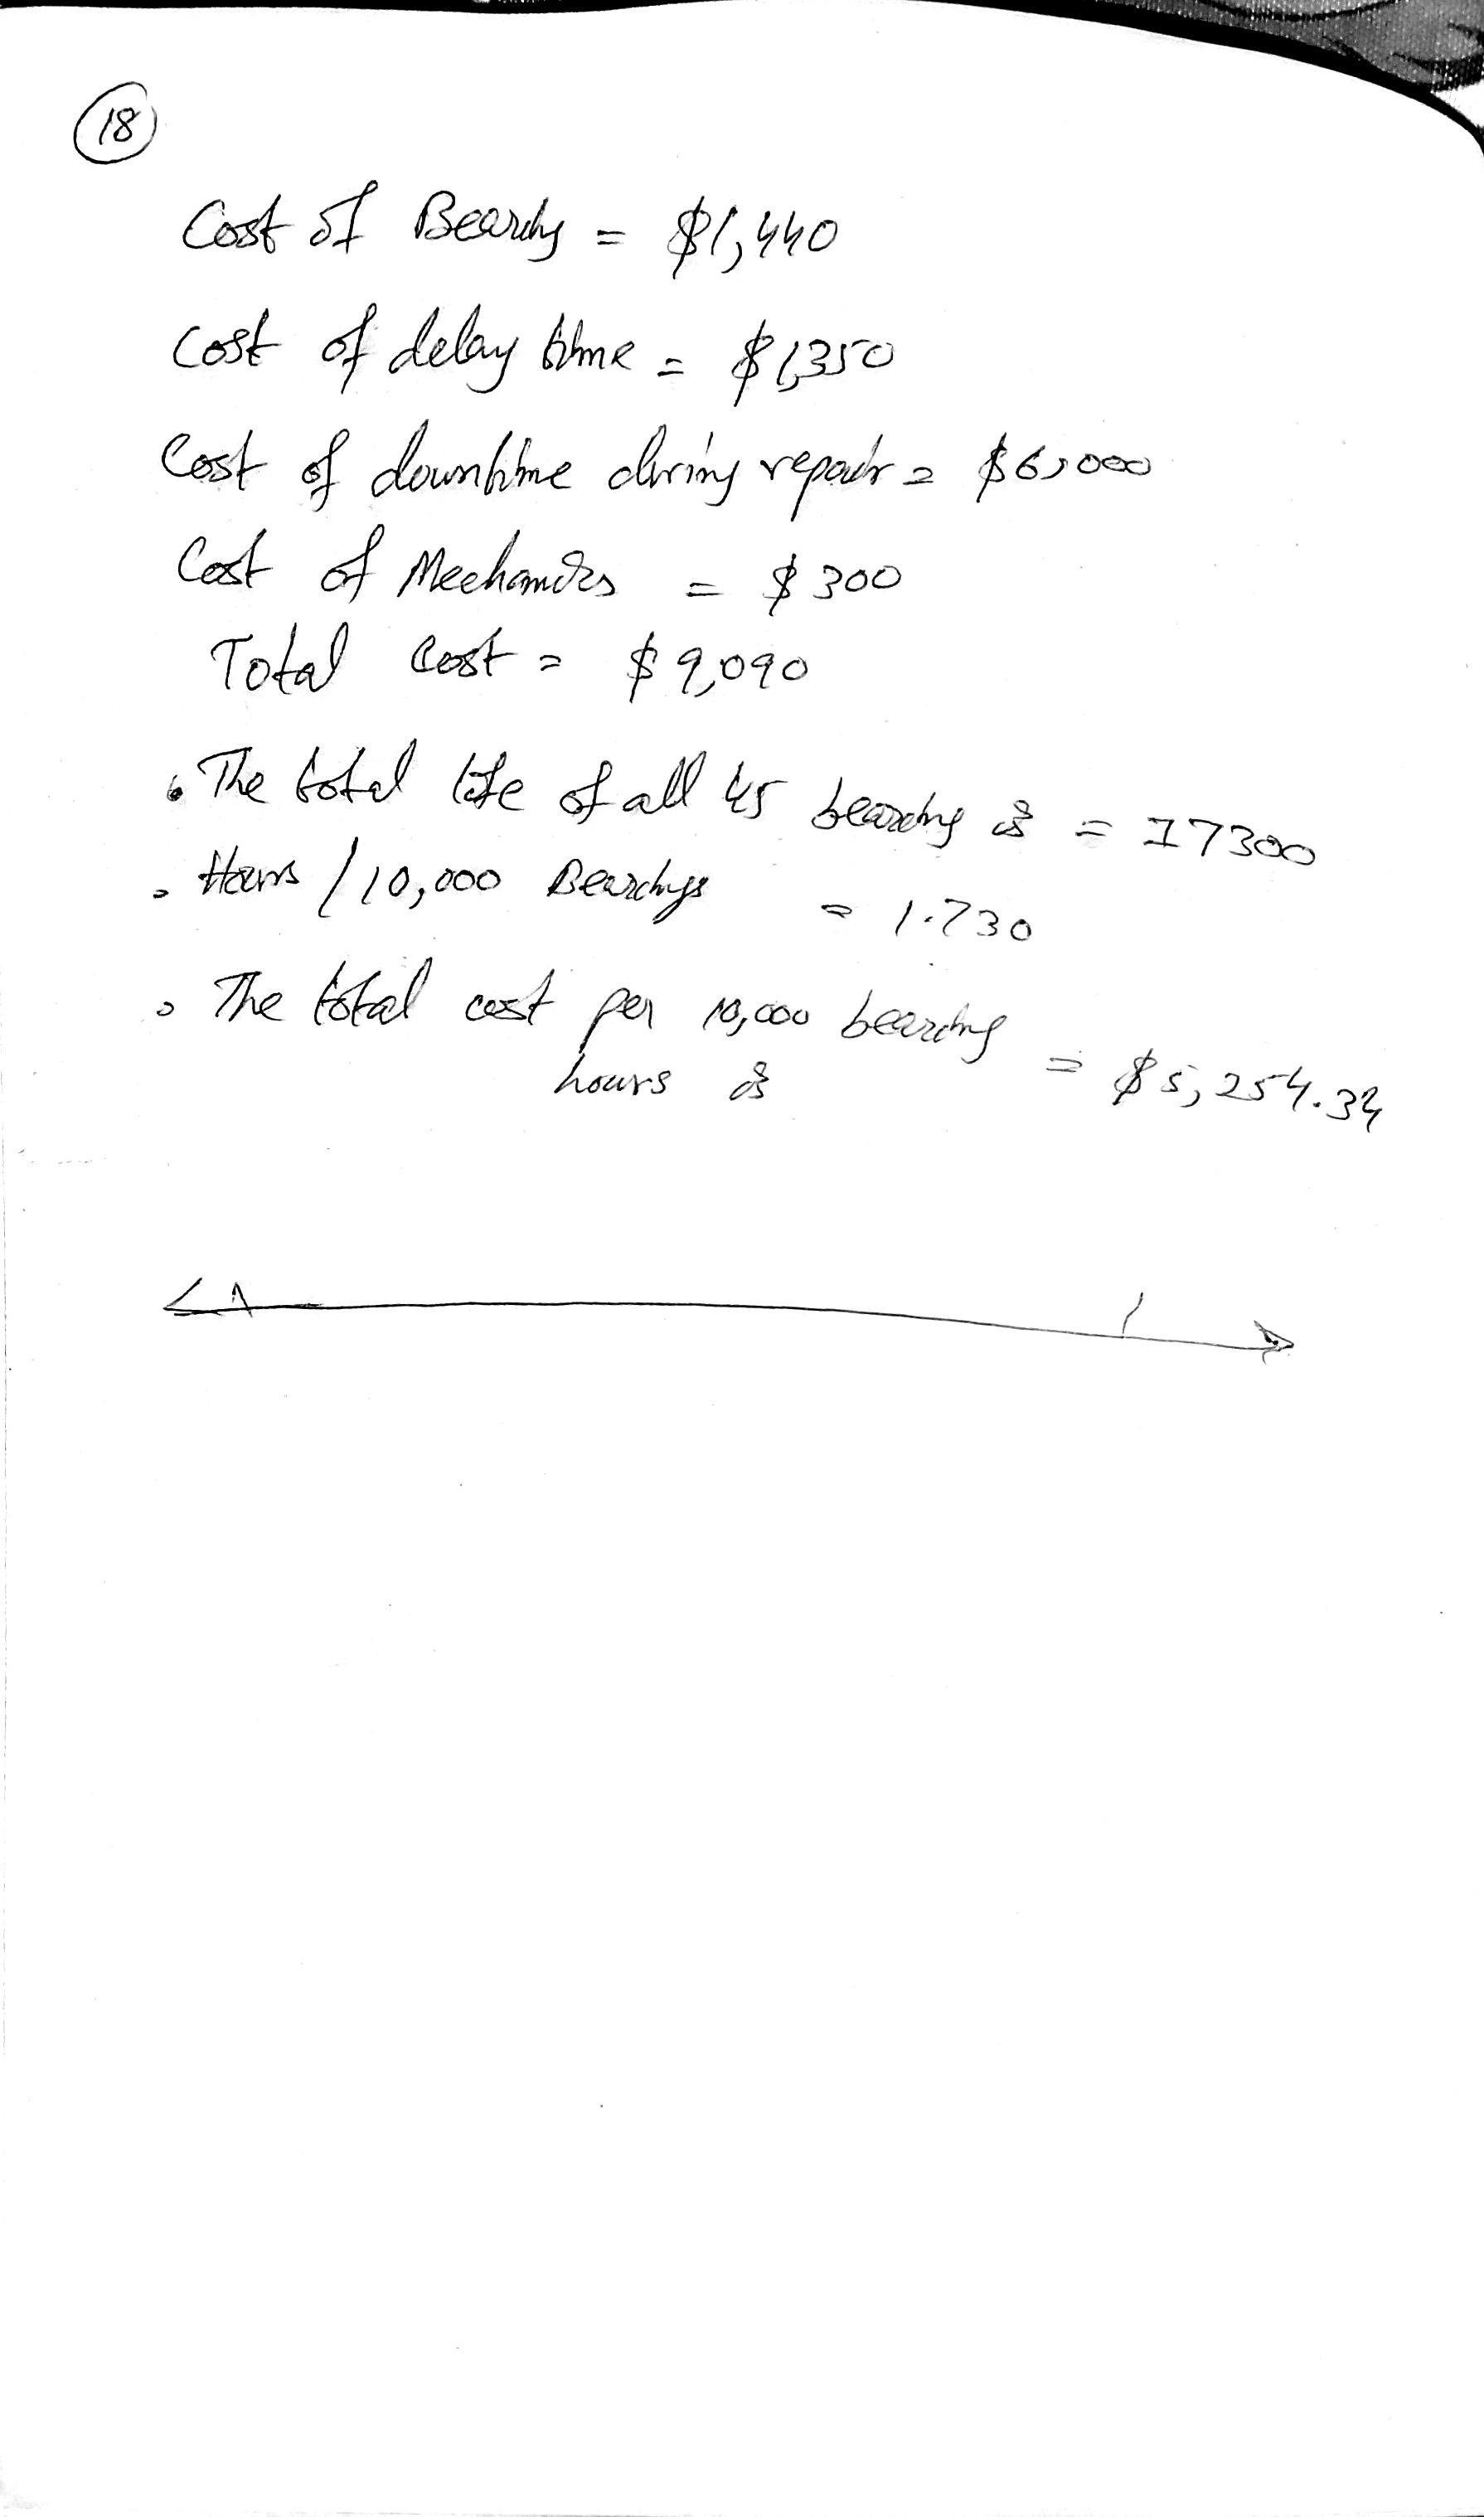 18
Cost of Bearing = $1,440
Cost of delay time = $1,350
Cost of downtime during repair = $6,000
Cost of Mechanics = $300
Total Cost = $9,090
The total life of all 45 bearing is = 17300
Hours / 10,000 Bearings = 1.730
The total cost per 10,000 bearing
hours is = $5,254.34